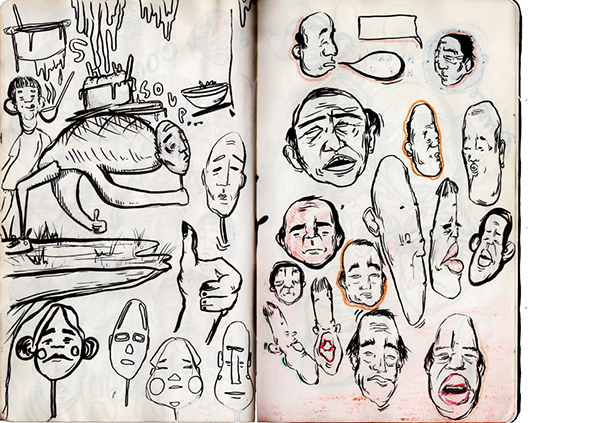 S
SOUP...